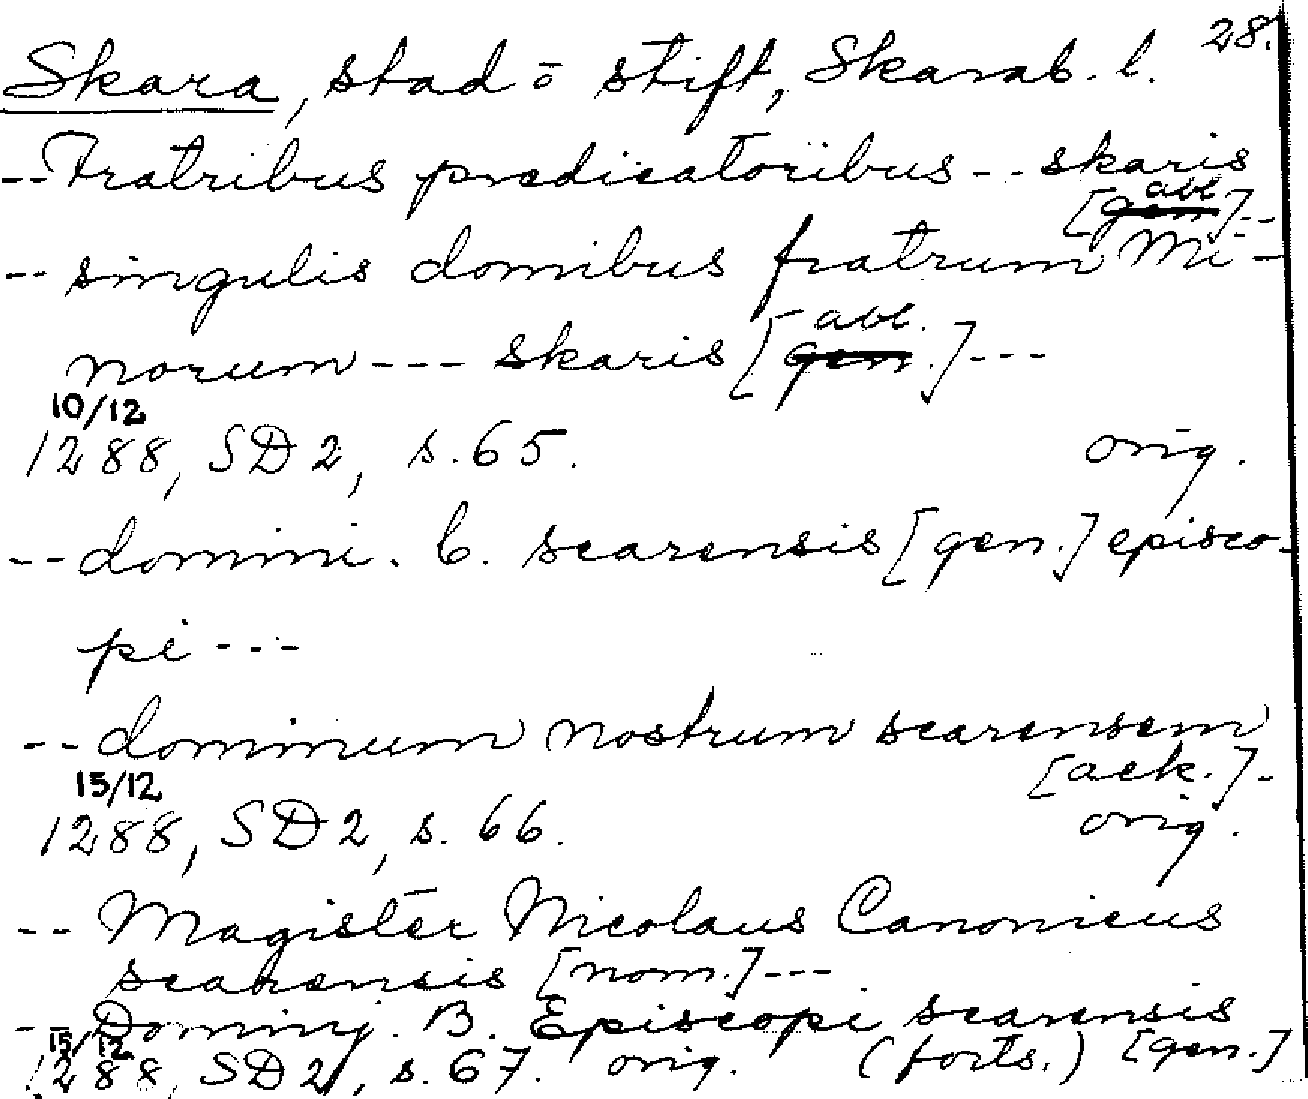 28.
Skara, stad o stift, Skarab. l.
-- Fratribus predicatoribus --- skaris
[gen abl]--
-- singulis domibus fratrum Mi-
abl.
norum --- skaris [gen.]---
10/12
1288, SD 2, s. 65. orig.
-- domini. b. scarensis [gen.] episco-
pi ---
-- dominum nostrum scarensem
[ack.]-
15/12
1288, SD 2, s. 66. orig.
-- Magister Nicolaus Canonicus
scarensis [nom.]---
-- Dominj. B. Episcopi scarensis
15/12 [gen.]
1288, SD 2, s. 67. orig. (forts.)